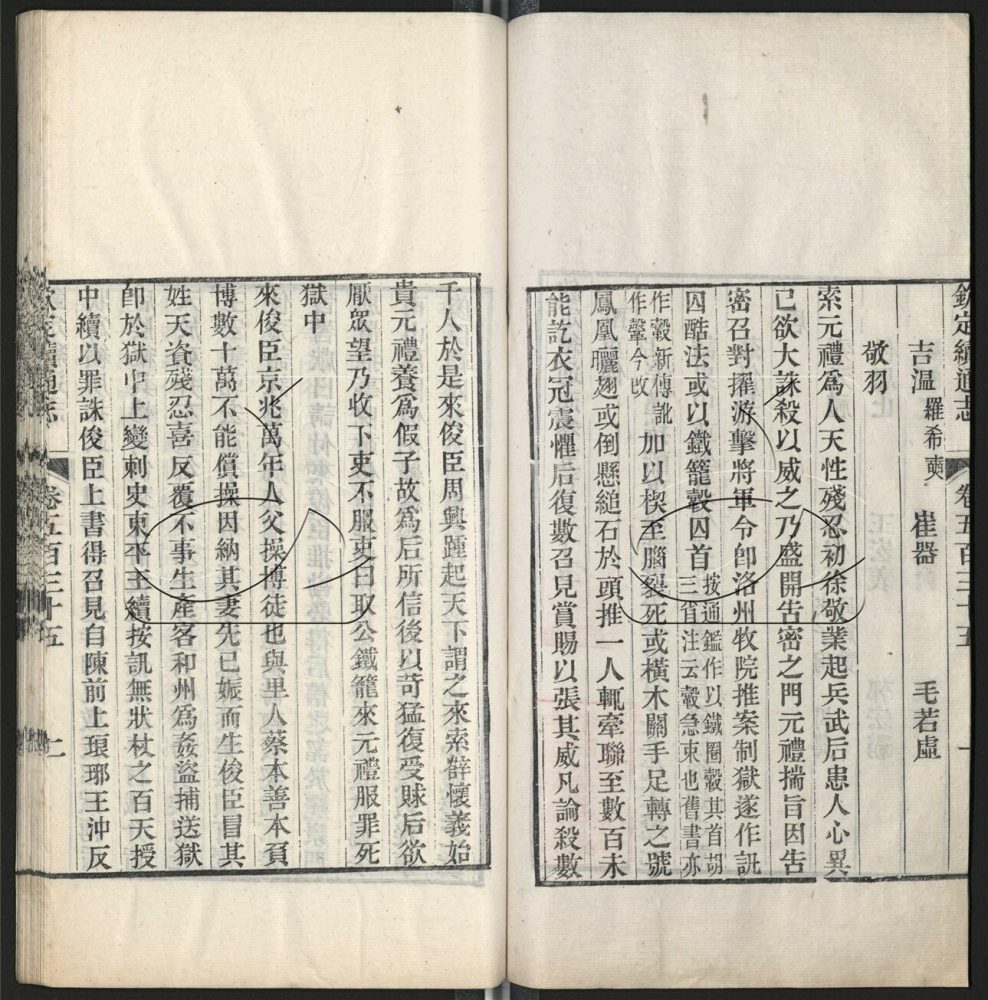 欽定續通志 卷五百三十五 一
吉溫 羅希奭 崔器 毛若虛
敬羽
索元禮為人天性殘忍初徐敬業起兵武后患人心異
己欲大誅殺以威之乃盛開告密之門元禮揣旨因告
密召對擢游擊將軍令卽洛州牧院推案制獄遂作訊
囚酷法或以鐵籠㲉囚首按通鑑作以鐵圈㲉其首胡
三省注云㲉急束也舊書亦
作㲉新傳訛
作鞏今改加以楔至腦裂死或橫木關手足轉之號
鳳凰曬翅或倒懸縋石於頭推一人輒牽聯至數百未
能訖衣冠震懼后復數召見賞賜以張其威凡論殺數
千人於是來俊臣周興踵起天下謂之來索薛懷義始
貴元禮養為假子故為后所信後以苛猛復受賕后欲
厭眾望乃收下吏不服吏曰取公鐵籠來元禮服罪死
獄中
來俊臣京兆萬年人父操博徒也與里人蔡本善本負
博數十萬不能償操因納其妻先已娠而生俊臣冒其
姓天資殘忍喜反覆不事生產客和州為姦盜捕送獄
卽於獄中上變刺史東平王續按訊無狀杖之百天授
中續以罪誅俊臣上書得召見自陳前上琅邪王沖反
卷五百三十五